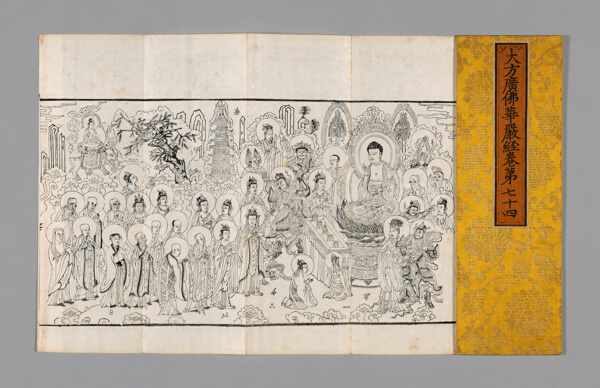 大方廣佛華嚴経卷第七十四